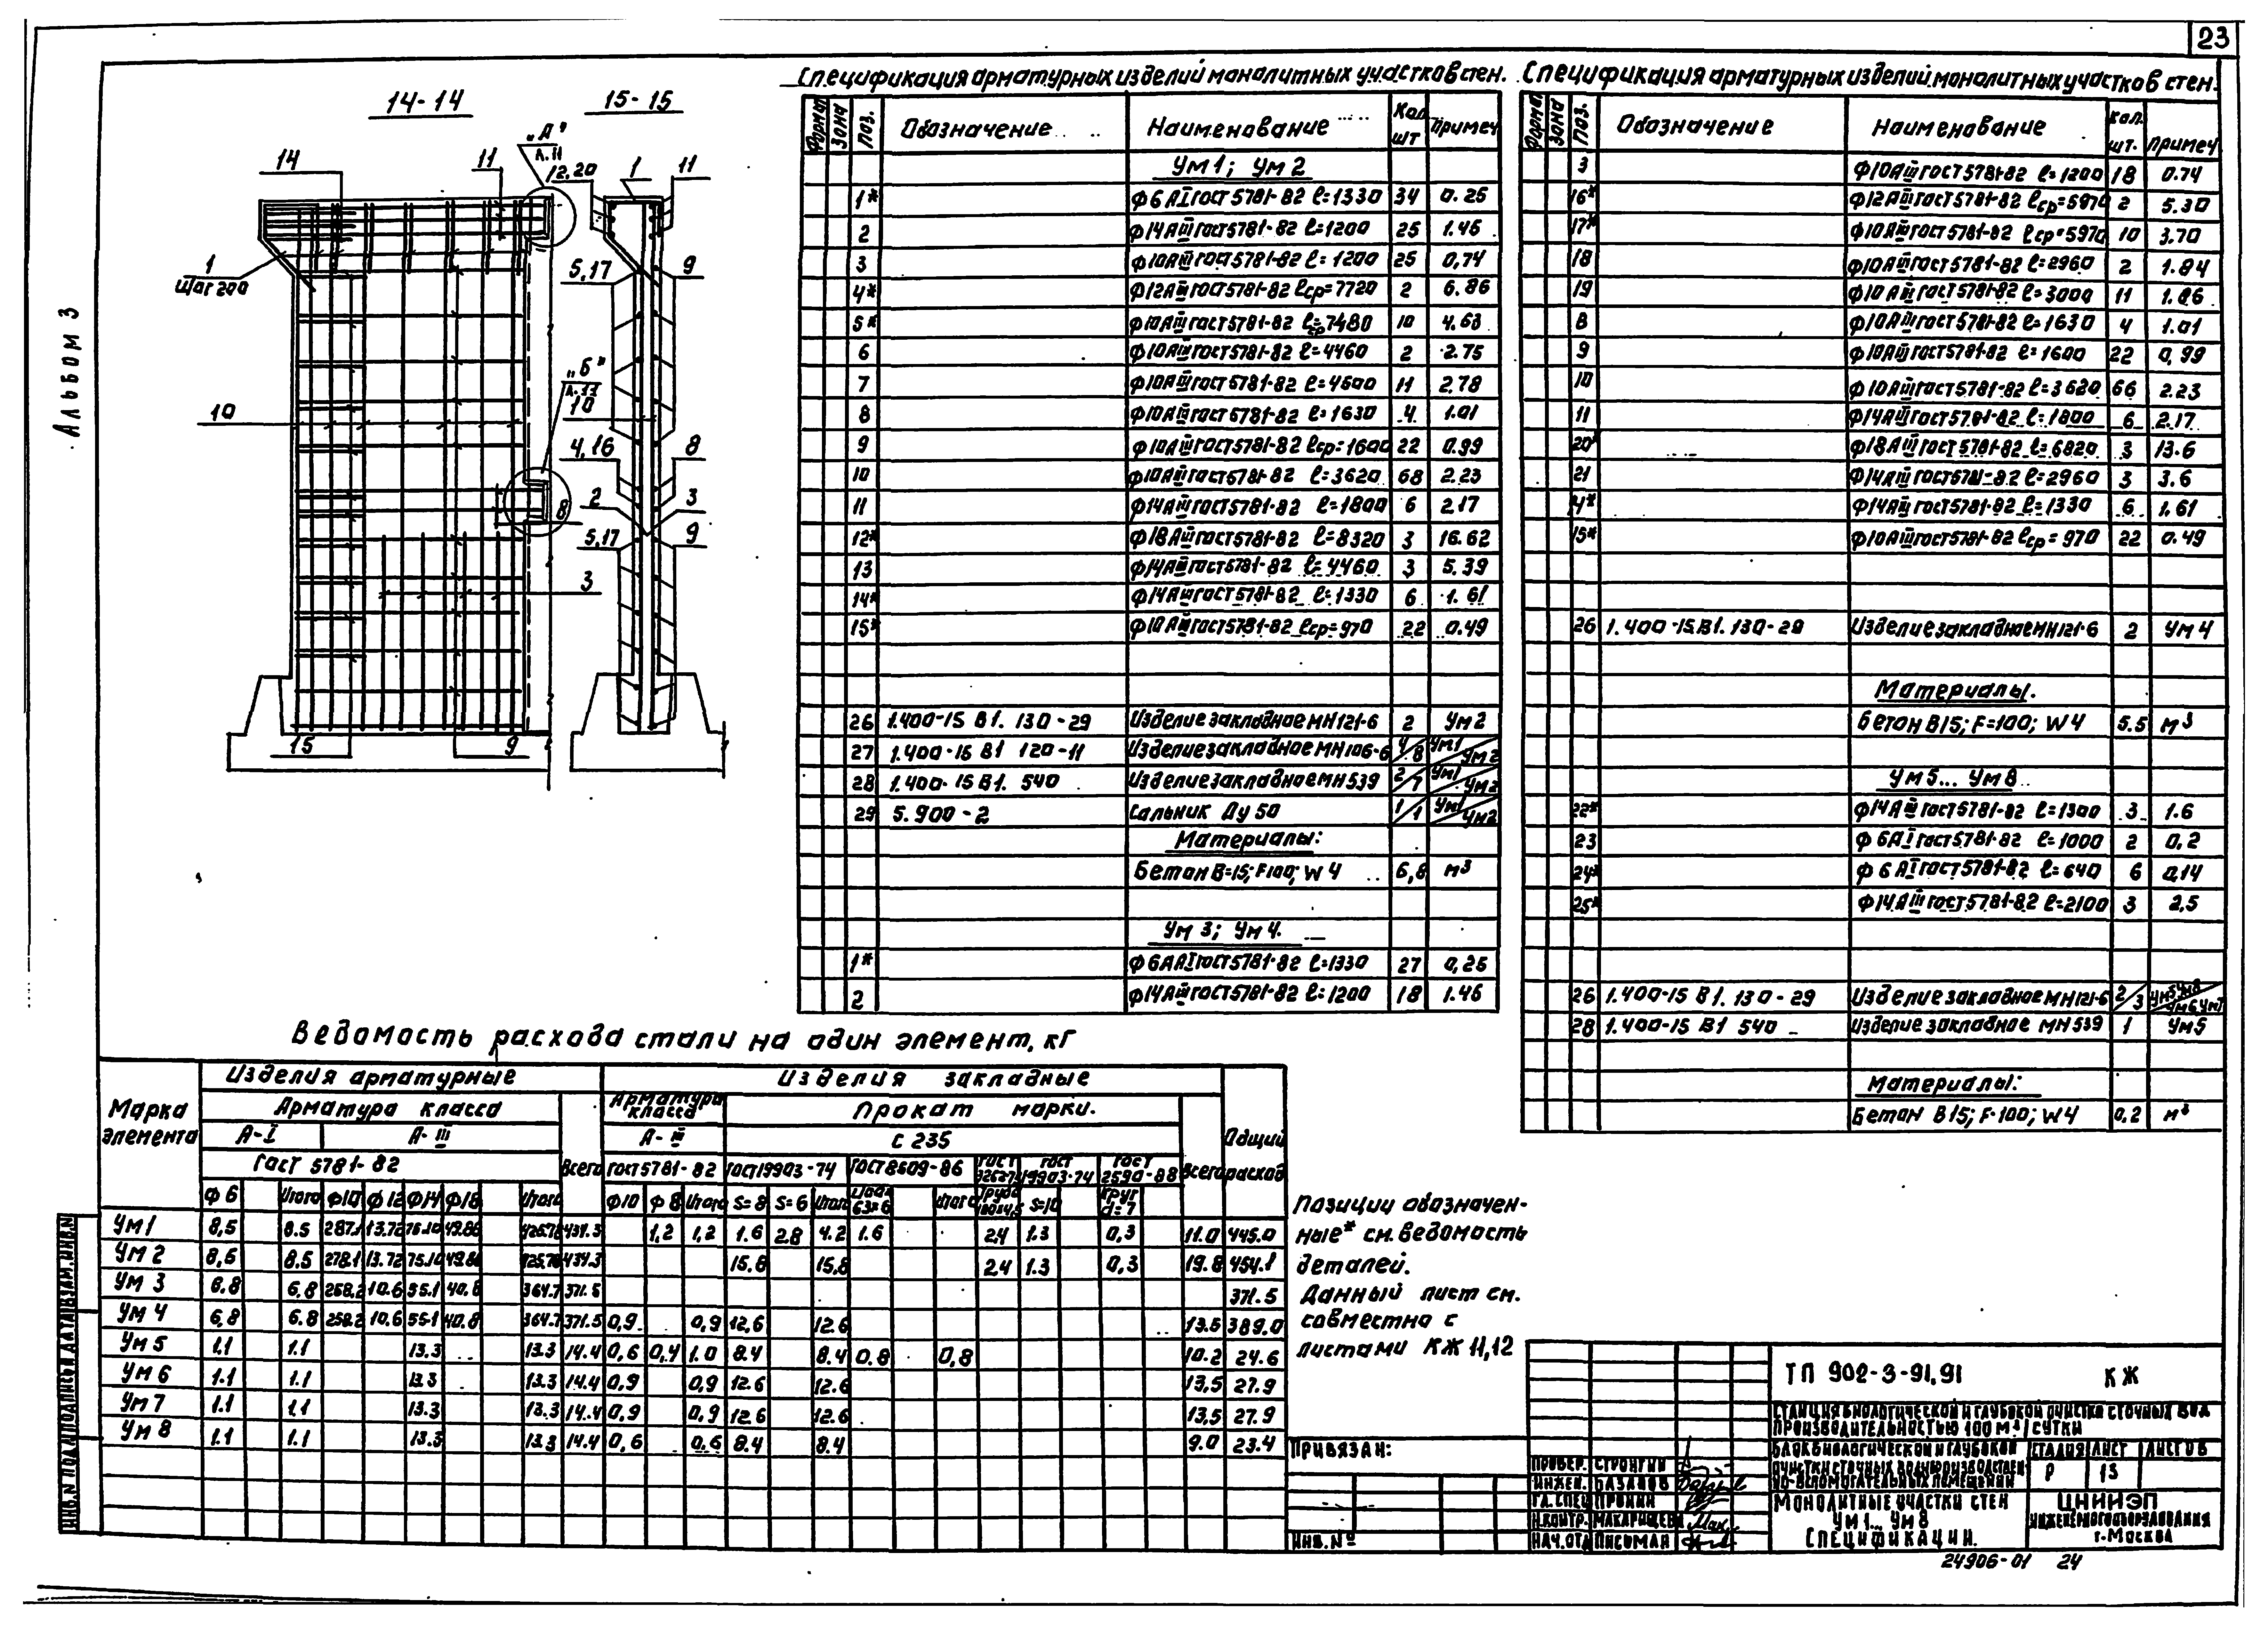 23
Альбом 3
14-14
15-15
„А"
л.11
14
11
12,20
1
11
1
Шаг 200
5,17
9
„Б"
л.11
10
10
4,16
8
2
3
8
5,17
9
3
15
9
Спецификация арматурных изделий монолитных участков стен.
Формат Зона Поз. Обозначение Наименование Кол шт Примеч
Ум 1; Ум 2
1* Ф6АI ГОСТ 5781-82 ℓ=1330 34 0.25
2 Ф14АIII ГОСТ 5781-82 ℓ=1200 25 1.45
3 Ф10АIII ГОСТ 5781-82 ℓ=1200 25 0,74
4* Ф12АIII ГОСТ 5781-82 ℓср=7720 2 6.86
5* Ф10АIII ГОСТ 5781-82 ℓср=7480 10 4.63
6 Ф10АIII ГОСТ 5781-82 ℓ=4460 2 2.75
7 Ф10АIII ГОСТ 5781-82 ℓ=4500 11 2.78
8 Ф10АIII ГОСТ 5781-82 ℓ=1630 4 1.01
9 Ф10АIII ГОСТ 5781-82 ℓср=1600 22 0.99
10 Ф10АIII ГОСТ 5781-82 ℓ=3620 68 2.23
11 Ф14АIII ГОСТ 5781-82 ℓ=1800 6 2.17
12* Ф18АIII ГОСТ 5781-82 ℓ=8320 3 16.62
13 Ф14АIII ГОСТ 5781-82 ℓ=4460 3 5.39
14* Ф14АIII ГОСТ 5781-82 ℓ=1330 6 1.61
15* Ф10АIII ГОСТ 5781-82 ℓср=970 22 0.49
26 1.400-15 В1. 130-29 Изделие закладное МН121-6 2 Ум 2
27 1.400-15 В1 120-11 Изделие закладное МН106-6 4/8 Ум1/Ум2
28 1.400-15 В1. 540 Изделие закладное МН539 2/7 Ум1/Ум2
29 5.900-2 Сальник Ду 50 1/1 Ум1/Ум2
Материалы:
Бетон В=15; F100; W4 6,8 м³
Ум 3; Ум 4.
1* Ф6АI ГОСТ 5781-82 ℓ=1330 27 0,25
2 Ф14АIII ГОСТ 5781-82 ℓ=1200 18 1.45
Спецификация арматурных изделий монолитных участков стен.
Формат Зона Поз. Обозначение Наименование Кол. шт. Примеч
3 Ф10АIII ГОСТ 5781-82 ℓ=1200 18 0.74
16* Ф12АIII ГОСТ 5781-82 ℓср=5970 2 5.30
17* Ф10АIII ГОСТ 5781-82 ℓср=5970 10 3.70
18 Ф10АIII ГОСТ 5781-82 ℓ=2960 2 1.84
19 Ф10АIII ГОСТ 5781-82 ℓ=3000 11 1.86
8 Ф10АIII ГОСТ 5781-82 ℓ=1630 4 1.01
9 Ф10АIII ГОСТ 5781-82 ℓ=1600 22 0,99
10 Ф10АIII ГОСТ 5781-82 ℓ=3620 66 2.23
11 Ф14АIII ГОСТ 5781-82 ℓ=1800 6 2.17
20* Ф18АIII ГОСТ 5781-82 ℓ=6820 3 13.6
21 Ф14АIII ГОСТ 5781-82 ℓ=2960 3 3.6
14* Ф14АIII ГОСТ 5781-82 ℓ=1330 6 1.61
15* Ф10АIII ГОСТ 5781-82 ℓср=970 22 0.49
26 1.400-15.В1. 130-29 Изделие закладное МН121-6 2 Ум 4
Материалы.
Бетон В15; F=100; W4 5.5 м³
Ум 5... Ум 8
22* Ф14АIII ГОСТ 5781-82 ℓ=1300 3 1.6
23 Ф6АI ГОСТ 5781-82 ℓ=1000 2 0,2
24* Ф6АI ГОСТ 5781-82 ℓ=640 6 0,14
25* Ф14АIII ГОСТ 5781-82 ℓ=2100 3 2,5
26 1.400-15 В1. 130-29 Изделие закладное МН121-6 2/3 Ум5Ум8/Ум6,Ум7
28 1.400-15 В1 540 Изделие закладное МН539 1 Ум5
Материалы:
Бетон В15; F-100; W4 0,2 м³
Ведомость расхода стали на один элемент, кг
Марка элемента
Изделия арматурные
Изделия закладные
Общий расход
Арматура класса
Всего
Арматура класса
Прокат марки.
Всего
А-I А-III А-III С 235
ГОСТ 5781-82 ГОСТ 5781-82 ГОСТ 19903-74 ГОСТ 8509-86 ГОСТ 3262-75 ГОСТ 19903-74 ГОСТ 2590-88
Ф6 Итого Ф10 Ф12 Ф14 Ф18 Итого Ф10 Ф8 Итого S=8 S=6 Итого Итого Труба S=10 Круг d=7
Ум 1 8,5 8.5 287.1 13.72 75.10 49.86 425.78 434.3 1,2 1,2 1.6 2.8 4.2 1.6 2.4 1.3 0,3 11.0 445.0
Ум 2 8,5 8.5 13.72 75.10 49.86 425.78 434.3 15.8 15,8 2.4 1.3 0,3 19.8 454.1
Ум 3 6.8 6.8 258.2 10.6 55.1 40.8 364.7 371.5 371.5
Ум 4 6,8 6.8 258.2 10.6 55.1 40.8 364.7 371.5 0,9 0,9 12,6 12.6 13.5 389.0
Ум 5 1.1 1.1 13.3 13.3 14.4 0,6 0,4 1.0 8.4 8.4 0.8 0,8 10.2 24.6
Ум 6 1.1 1.1 13.3 13.3 14.4 0,9 0,9 12.6 12.6 13,5 27.9
Ум 7 1.1 1.1 13.3 13.3 14.4 0,9 0,9 12.6 12.6 13,5 27.9
Ум 8 1.1 1.1 13.3 13.3 14.4 0,6 0.6 8.4 8.4 9.0 23.4
Позиции обозначен-
ные* см. ведомость
деталей.
Данный лист см.
совместно с
листами КЖ 11,12
Привязан:
Инв. №
ТП 902-3-91.91 КЖ
Станция биологической и глубокой очистки сточных вод
производительностью 100 м³/сутки
Блок биологической и глубокой
очистки сточных вод и производствен-
но-вспомогательных помещений
Стадия Лист Листов
Р 13
Монолитные участки стен
Ум 1... Ум 8
Спецификации.
ЦНИИЭП
инженерного оборудования
г. Москва
Провер. Стронгин
Инжен. Базанов
Гл. спец Пронин
Н.контр. Макарищева
Нач. отд Письман
Инв. № подл Подпись и дата Взам. инв. №
24906-01 24